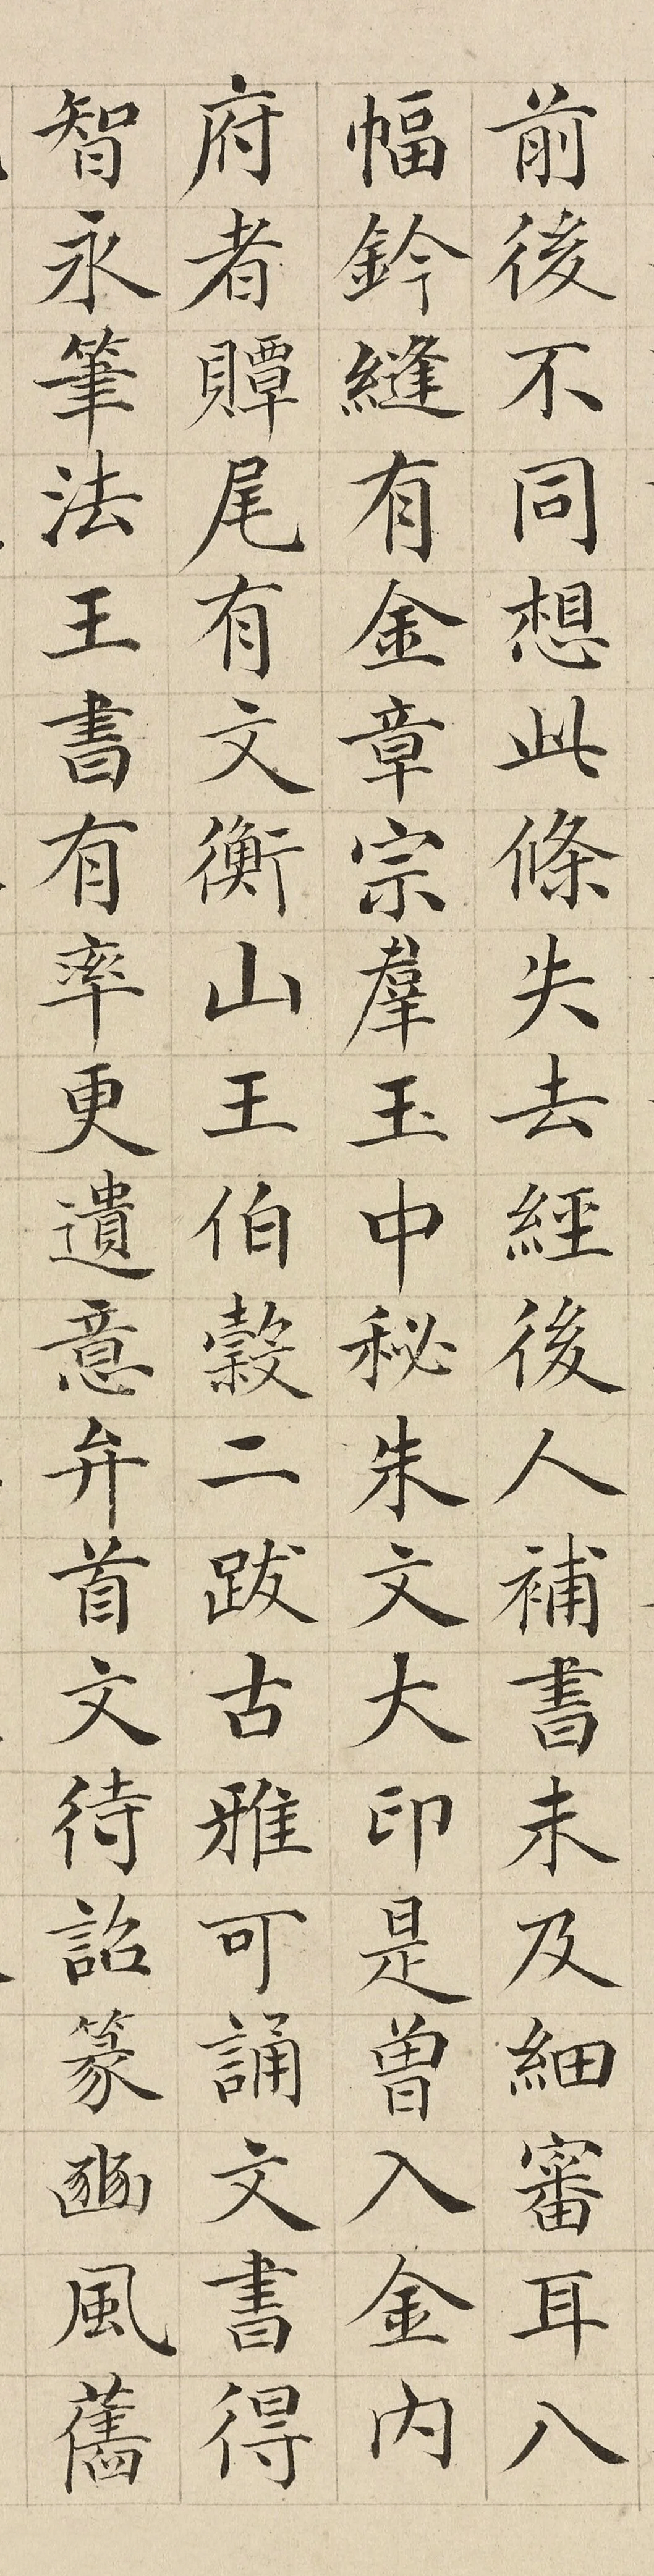 前後不同想此條失去經後人補書未及細審耳八
幅鈐縫有金章宗羣玉中秘朱文大印是曾入金內
府者贉尾有文衡山王伯穀二跋古雅可誦文書得
智永筆法王書有率更遺意弁首文待詔篆豳風舊